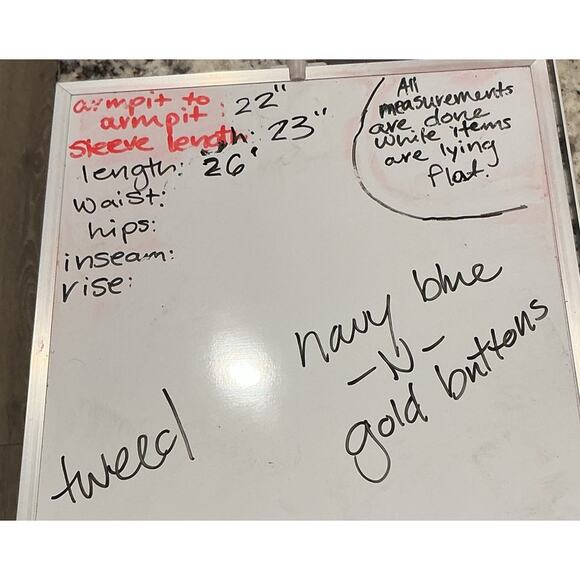 armpit to
armpit : 22"
sleeve length: 23"
length: 26"
waist:
hips:
inseam:
rise:
All
measurements
are done
while items
are lying
flat.
navy blue
-N-
gold buttons
tweed